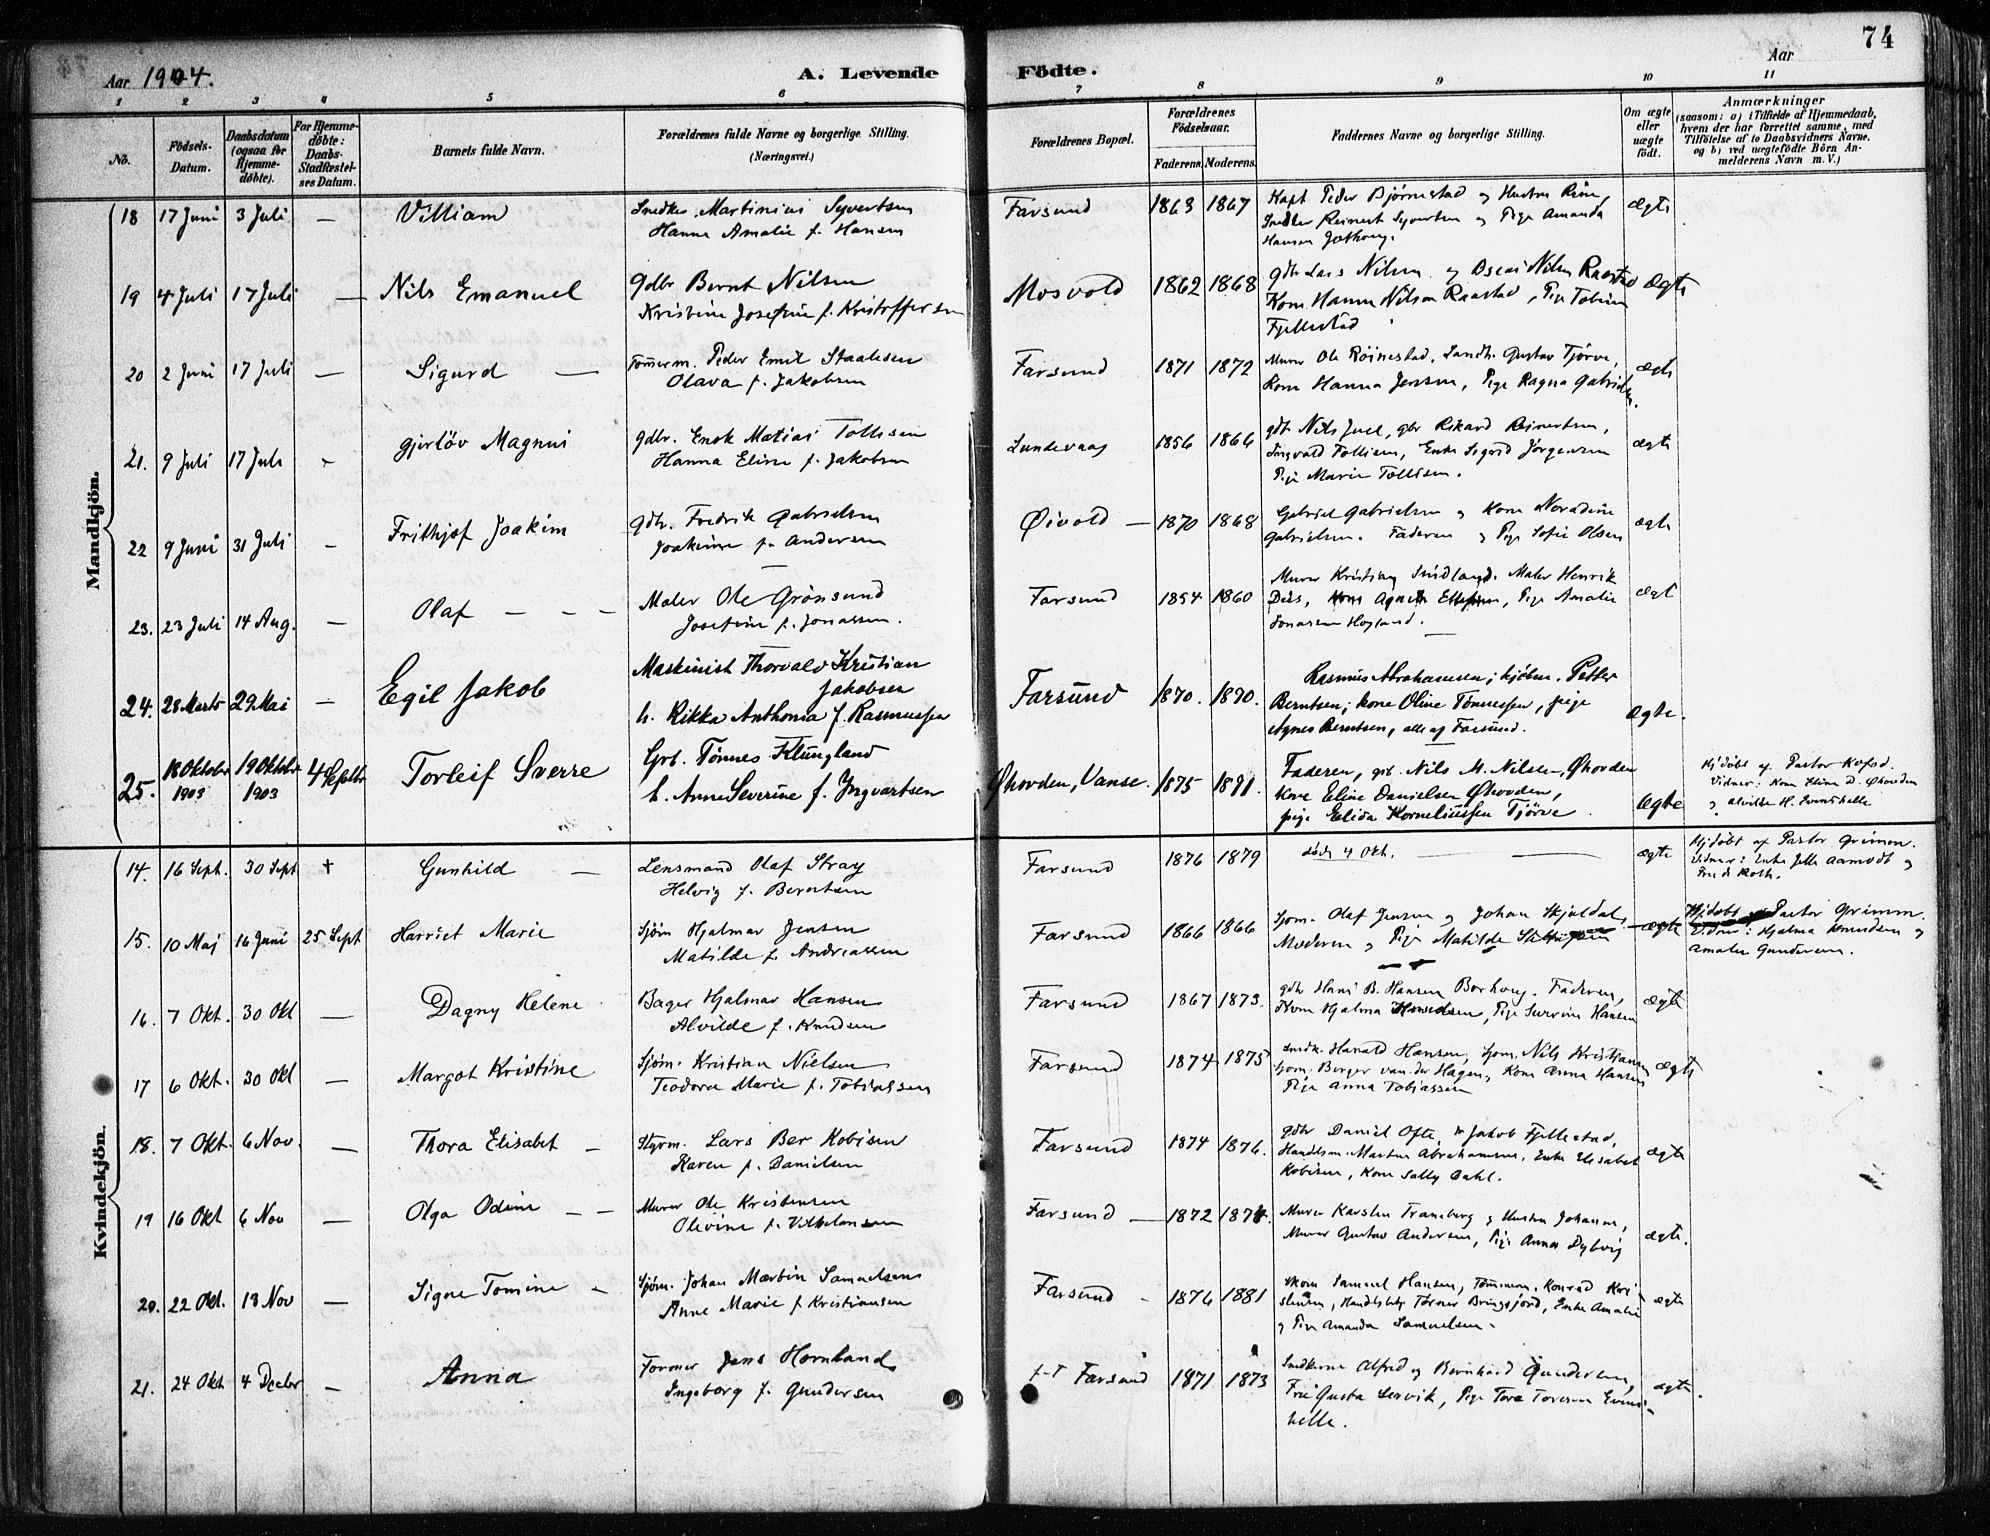 Aar 1904.
A. Levende
Födte.
Aar
74
1 2 3 4 5 6 7 8 9 10 11
No.
Födsels-
Datum.
Daabsdatum
(ogsaa for
Hjemme-
döbte).
For Hjemme-
döbte:
Daabs-
Stadfæstel-
ses Datum.
Barnets fulde Navn.
Forældrenes fulde Navne og borgerlige Stilling.
(Næringsvei.)
Forældrenes Bopæl.
Forældrenes
Födselsaar.
Faderens. Moderens.
Faddernes Navne og borgerlige Stilling.
Om ægte
eller
uægte
födt.
Anmærkninger
(saasom: a) i Tilfælde af Hjemmedaab,
hvem der har forrettet samme, med
Tilföielse af to Daabsvidners Navne.
og b) ved uegtefödte Börn An-
melderens Navn m. V.)
Mandkjön.
18 17 Juni 3 Juli — Villiam
Martinius Syvertsen
Hanna Amalie f. Hansen
Farsund 1863 1867
Kapt Peder Bjørnestad og Hustru
Reinert Syvertsen og Pige Amanda
Hansen
ægte
19 4 Juli 17 Juli — Nils Emanuel
Gdbr Bernt Nilsen
Kristine Josefine f. Kristoffersen
Mosvold 1862 1868
Lars Nilsen og Oscar Nilsen Raastad
Kone Hanna Nilsen Raastad, Pige
Fjellestad
Ægte
20 2 Juni 17 Juli — Sigurd —
Tømmerm. Peder Emil Staalesen
Olava f. Jakobsen
Farsund 1871 1872
Murer Ole Røinestad, Gustav Tjörve,
Kone Hanna Jensen, Pige Ragna
ægte
21. 9 Juli 17 Juli - Gjerløv Magnus
Gdbr. Enok Matias Tollisen
Hanna Eline f. Jakobsen
Lundevaag 1856 1866
Nils Juel, gbr Rikard Reinertsen,
Ingvald Tollisen, Enke Sigrid Jørgensen
Pige Marie Tollisen.
ægte
22 9 Juni 31 Juli - Frithjof Joakim
Gdbr. Fredrik Gabrielsen
Joakime f. Andersen
Øivold — 1870 1868
Gabriel Gabrielsen og Kone
Gabrielsen. Faderen og Pige Sofie Olsen
ægte
23. 23 Juli 14 Aug. — Olaf — — —
Maler Ole Grönsund
Josefine f. Jonassen.
Farsund 1854 1860
Murer Kristian Maler Henrik
Pige Amalie
Jonassen
ægte
24. 28 Marts 29 Mai — Egil Jakob
Maskinist Thorvald Kristian
Jakobsen
h. Rikka Anthonia f. Rasmussen
Farsund 1870. 1870.
Rasmus Abrahamsen; kjöbm. Petter
Berntsen; kone Oline Tönnessen, pige
Agnes Berntsen, alle af Farsund.
Ægte.
25. 18 Oktober 1903 19 Oktober 1903 4 Septbr Torleif Sverre
Grb. Tönnes Klungland
h. Anne Severine f. Ingvartsen
Øhovden, Vanse. 1875 1871.
Faderen, grb. Nils M. Nilsen, Øhovden
kone Eline Danielsen Øhovden,
pige Elida Korneliussen Tjörve
Ægte
Hjdøbt af Pastor
Vidner: Kone Eline D. Øhovden
og
Kvindekjön.
14. 16 Sept. 30 Sept + Gunhild —
Lensmand Olaf Stray
Helvig f. Berntsen
Farsund 1876 1879
død 4 Okt. — —
ægte
Hjdøbt af Pastor Grimm.
Vidner: Enke Aamodt og
15. 10 Maj 16 Juni 25 Sept Harriet Marie
Sjöm Hjalmar Jensen
Matilde f. Andreassen
Farsund 1866 1866
Sjøm. Olaf Jensen og Johan
Moderen og Pige Matilde
ægte
Hjdøbt af Pastor Grimm.
Vidner: Hjalma Knudsen og
Amalie Gundersen.
16. 7 Okt. 30 Okt — Dagny Helene
Bager Hjalmar Hansen
Alvilde f. Knudsen
Farsund 1867 1873.
Hans B. Hansen Borhoug. Faderen,
Kone Hjalma Knudsen, Pige Severine Hansen
ægte
17 6 Okt. 30 Okt — Margot Kristine
Sjøm. Kristian Nielsen
Teodora Marie f. Tobiassen
Farsund 1874 1875
Harald Hansen, Sjøm. Nils
Sjøm. Berger van der Hagen, Kone Anna Hansen
Pige Anna Tobiassen
ægte
18. 7 Okt. 6 Nov. — Thora Elisabet —
Styrm. Lars Ber Robisen
Karen f. Danielsen
Farsund 1874 1876.
gdbr Daniel Ofte, Jakob Fjellestad,
Abrahamsen, Enke Elisabet
Robisen, Kone Sally Dahl.
ægte
19 16 Okt 6 Nov — Olga Odine — —
Murer Ole Kristensen
Olevine f. Vilhelmsen
Farsund — 1872 1874.
Murer Karsten Tranberg og Hustru Johanne,
Murer Gustav Andersen, Pige Anna Dybvig
ægte.
20. 22 Okt. 13 Nov — Signe Tomine —
Sjøm. Johan Martin Samuelsen
Anne Marie f. Kristiansen
Farsund - 1876 1881
Skom Samuel Hansen, Tømmerm. Konrad Kri-
stensen, Bringsjord, Enke Amalie
og Pige Amanda Samuelsen.
ægte
21. 24 Okt 4 Decbr — Anna
Jens Hornland
Ingeborg f. Gundersen
f-T Farsund 1871 1873
Snedkerne Alfred og Bernhard Gundersen,
Pige Tora
helle.
ægte.